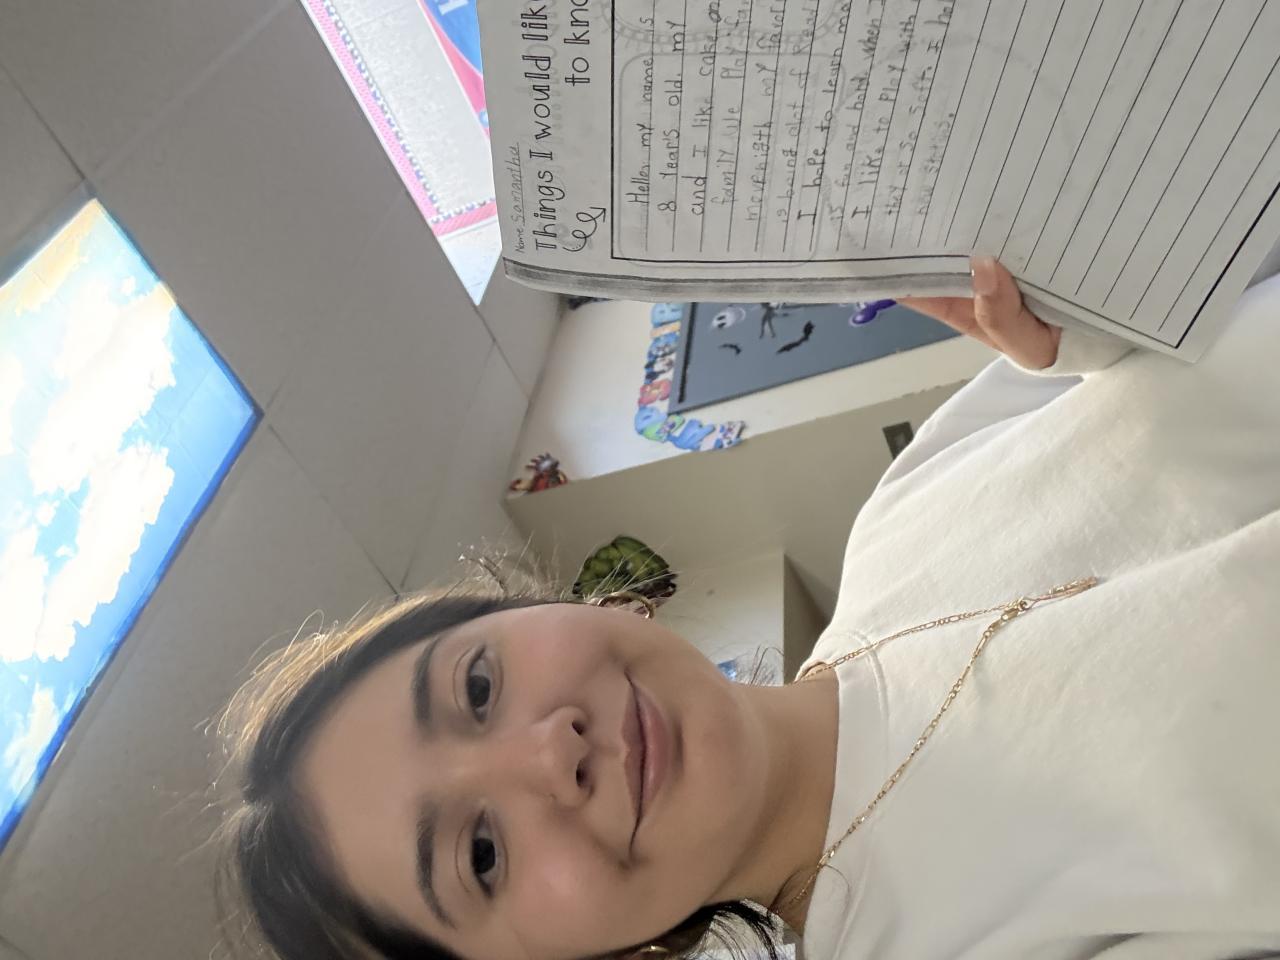 Name Samantha
Things I would like
to kno
Hello my name is
8 year's old. my
and I like cake an
family we Play
my favor
is having alot of
I hope to learn ma
is fun and hard. When I
I like to Play with
they ar so soft. I